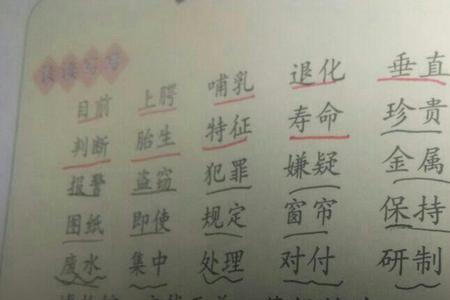 读读写写
目前 上腭 哺乳 退化 垂直
判断 胎生 特征 寿命 珍贵
报警 盗窃 犯罪 嫌疑 金属
图纸 即使 规定 窗帘 保持
废水 集中 处理 对付 研制